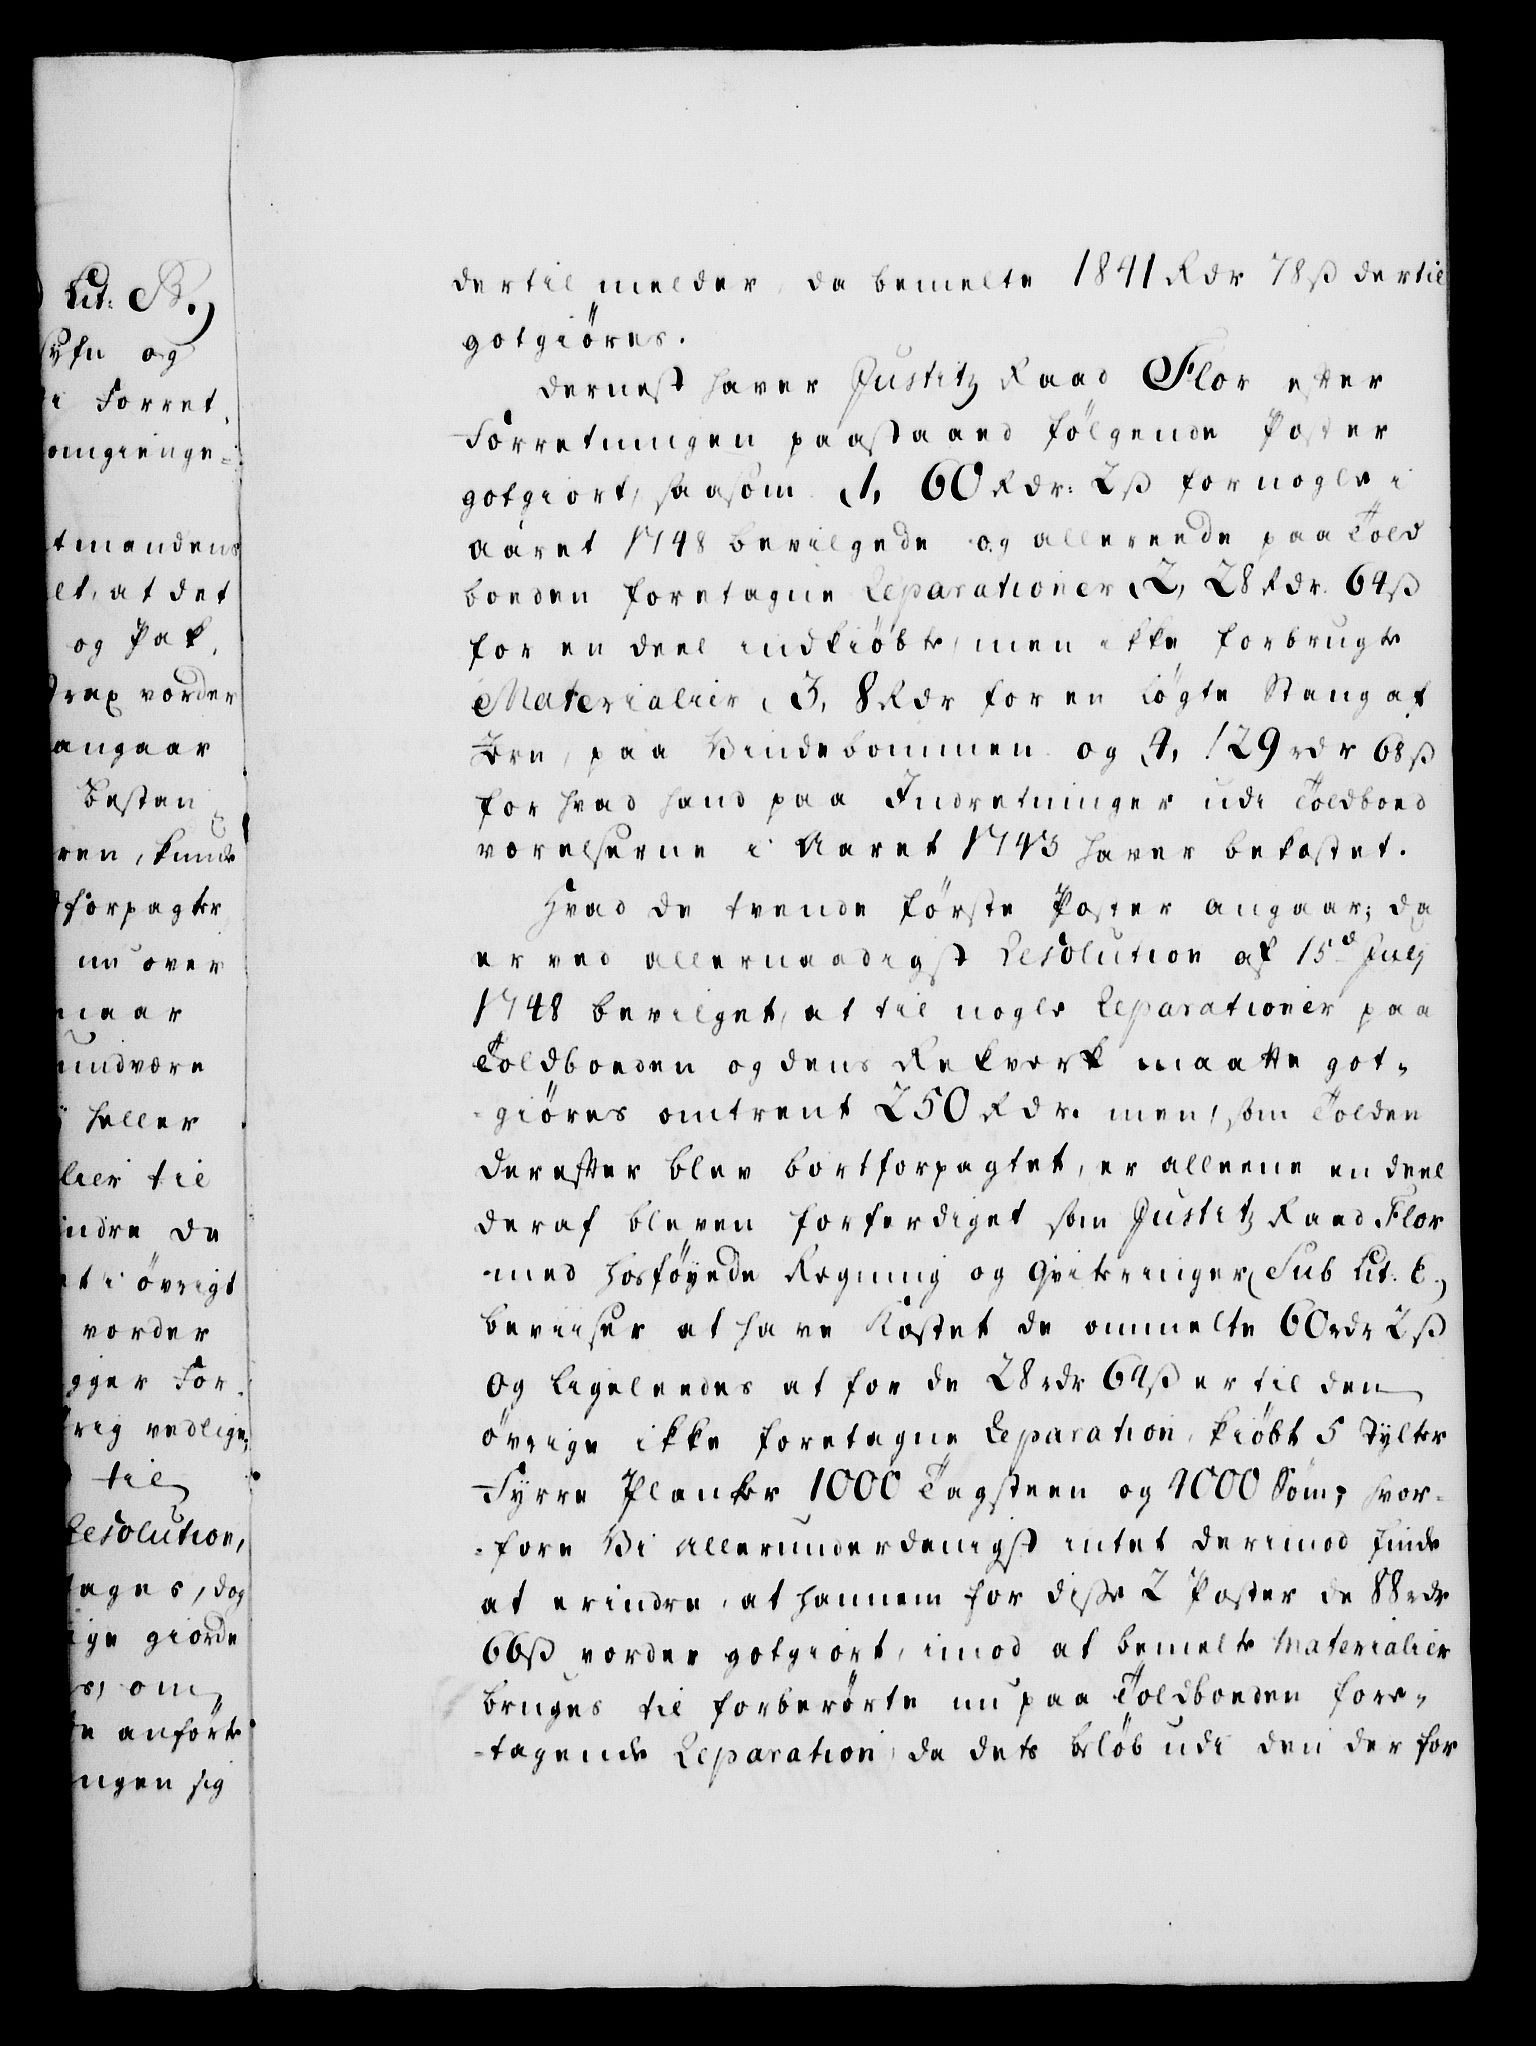 Lit: B.)
og
i Forret,
omgienge=
tmandens
elt, at det
og Pak,
vorder
angaar
bestan
ren, kunde
forpagter
nu over
naar
undvære
heller
lier til
indre da
at i övrigt
vorder
gger For,
rig vedlige,
til
Resolution,
tages, dog
ige giorde
s, om,
te anförte
ngen sig
dertil melder, da bemelte 1841 Rdr 78ß dertil
gotgiöres.
Dernest haver Justitz Raad Flor efter
Forretningen paastaaed fölgende Poster
gotgiort, saasom 1, 60 Rdr: 2ß for nogle i
Aaret 1748 bevilgede og allereede paa Told
boeden foretagne Reparationer, 2, 28 Rdr. 64ß
for en deel indkiöbte, men ikke forbrugte
Materialier, 3, 8 Rdr for en Lögte Stang af
Træe, paa Vindebommen og 4, 129 rdr 68ß
for hvad hand paa Indretninger udi Toldboed
værelserne i Aaret 1743 haver bekostet.
Hvad de tvende förste Poster angaar; da
er ved allernaadigst Resolution af 15d July
1748 bevilget, at til nogle Reparationer paa
Toldboeden og dens Rekverk maatte got,
-giöres omtrent 250 Rdr. men, som Tolden
derefter blev bortforpagtet, er alleene en deel
deraf bleven forferdiget som Justitz Raad Flor
med hosföyede Regning og Qviteringer, Sub Lit: C.,
beviiser at have kostet de ommelte 60 rdr 2ß
og ligeleedes at for de 28 rdr 64ß er til den
övrige ikke foretagne Reparation, kiöbt 5 Tylter
Fyrre Planker 1000 Tagsteen og 1000 Söm; hvor-
-fore Vi allerunderdanigst intet derimod finde
at erindre, at hannem for disse 2 Poster de 88 rdr
66ß vorder gotgiort, imod at bemelte Materialier
bruges til forberörte nu paa Toldboeden fore,
-tagende Reparation, da dets belöb udi den der for